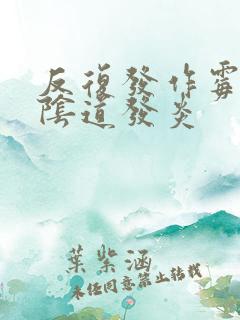 反復發作霉
陰道發炎
葉紫涵
未经同意禁止转载